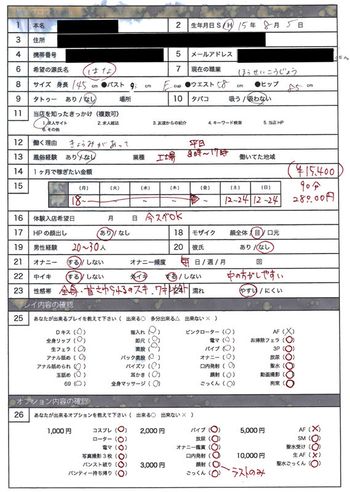 1 本名 2 生年月日 S/H 15年 8月 5日
3 住所
4 携帯番号 5 メールアドレス
6 希望の源氏名 はな 7 現在の職業
8 サイズ 身長 145 cm ●バスト ●カップ E ●ウエスト 58 cm ●ヒップ 85 cm
9 タトゥー あり/なし 場所 10 タバコ 吸う/吸わない
11 当店を知ったきっかけ (複数可)
1.求人サイト 2.求人雑誌 3.お友達からの紹介 4.キーワード検索 5.当店HP
6.その他
12 働く理由 きょうみがあって
13 風俗経験 あり/なし 業種 工場 平日 8時〜17時 働いてた地域
14 1ヶ月で稼ぎたい金額 ¥15,400
15 (月) (火) (水) (木) (金) (土) (日) 90分
18 12-24 12-24 289.00円
16 体験入店希望日 月 日 今スグOK
17 HPの顔出し あり/なし 18 モザイク 顔全体/目/口元
19 男性経験 20〜30人 20 彼氏 あり/なし
21 オナニー する/しない オナニー頻度 毎日/週/月 回
22 中イキ する/しない 外イキ する/しない 中の方がしやすい
23 性感帯 濡れ やすい/にくい
プレイ内容の確認
25 あなたが出来るプレイを教えて下さい (出来る○ 多分出来る△ 出来ない×)
Dキス 指入れ ピンクローター AF ×
全身リップ 即尺 電マ お掃除フェラ
生フェラ 素股 バイブ 3P
アナル舐め バック素股 オナニー 放尿
アナル舐められ パイズリ 口内発射 聖水
玉舐め 耳かき 顔射 動画撮影
69 全身マッサージ ごっくん 拘束
オプション内容の確認
26 あなたが出来るオプションを教えて下さい (出来る○ 出来ない×)
1,000円 コスプレ 2,000円 バイブ 5,000円 AF ×
ローター 放尿 SM
電マ オナニー鑑賞 聖水受け
写真撮影3枚 口内発射 10,000円 生AF ×
パンスト破り 3,000円 顔射 聖水ごっくん
パンティー持ち帰り ごっくん 拘束
ラストのみ